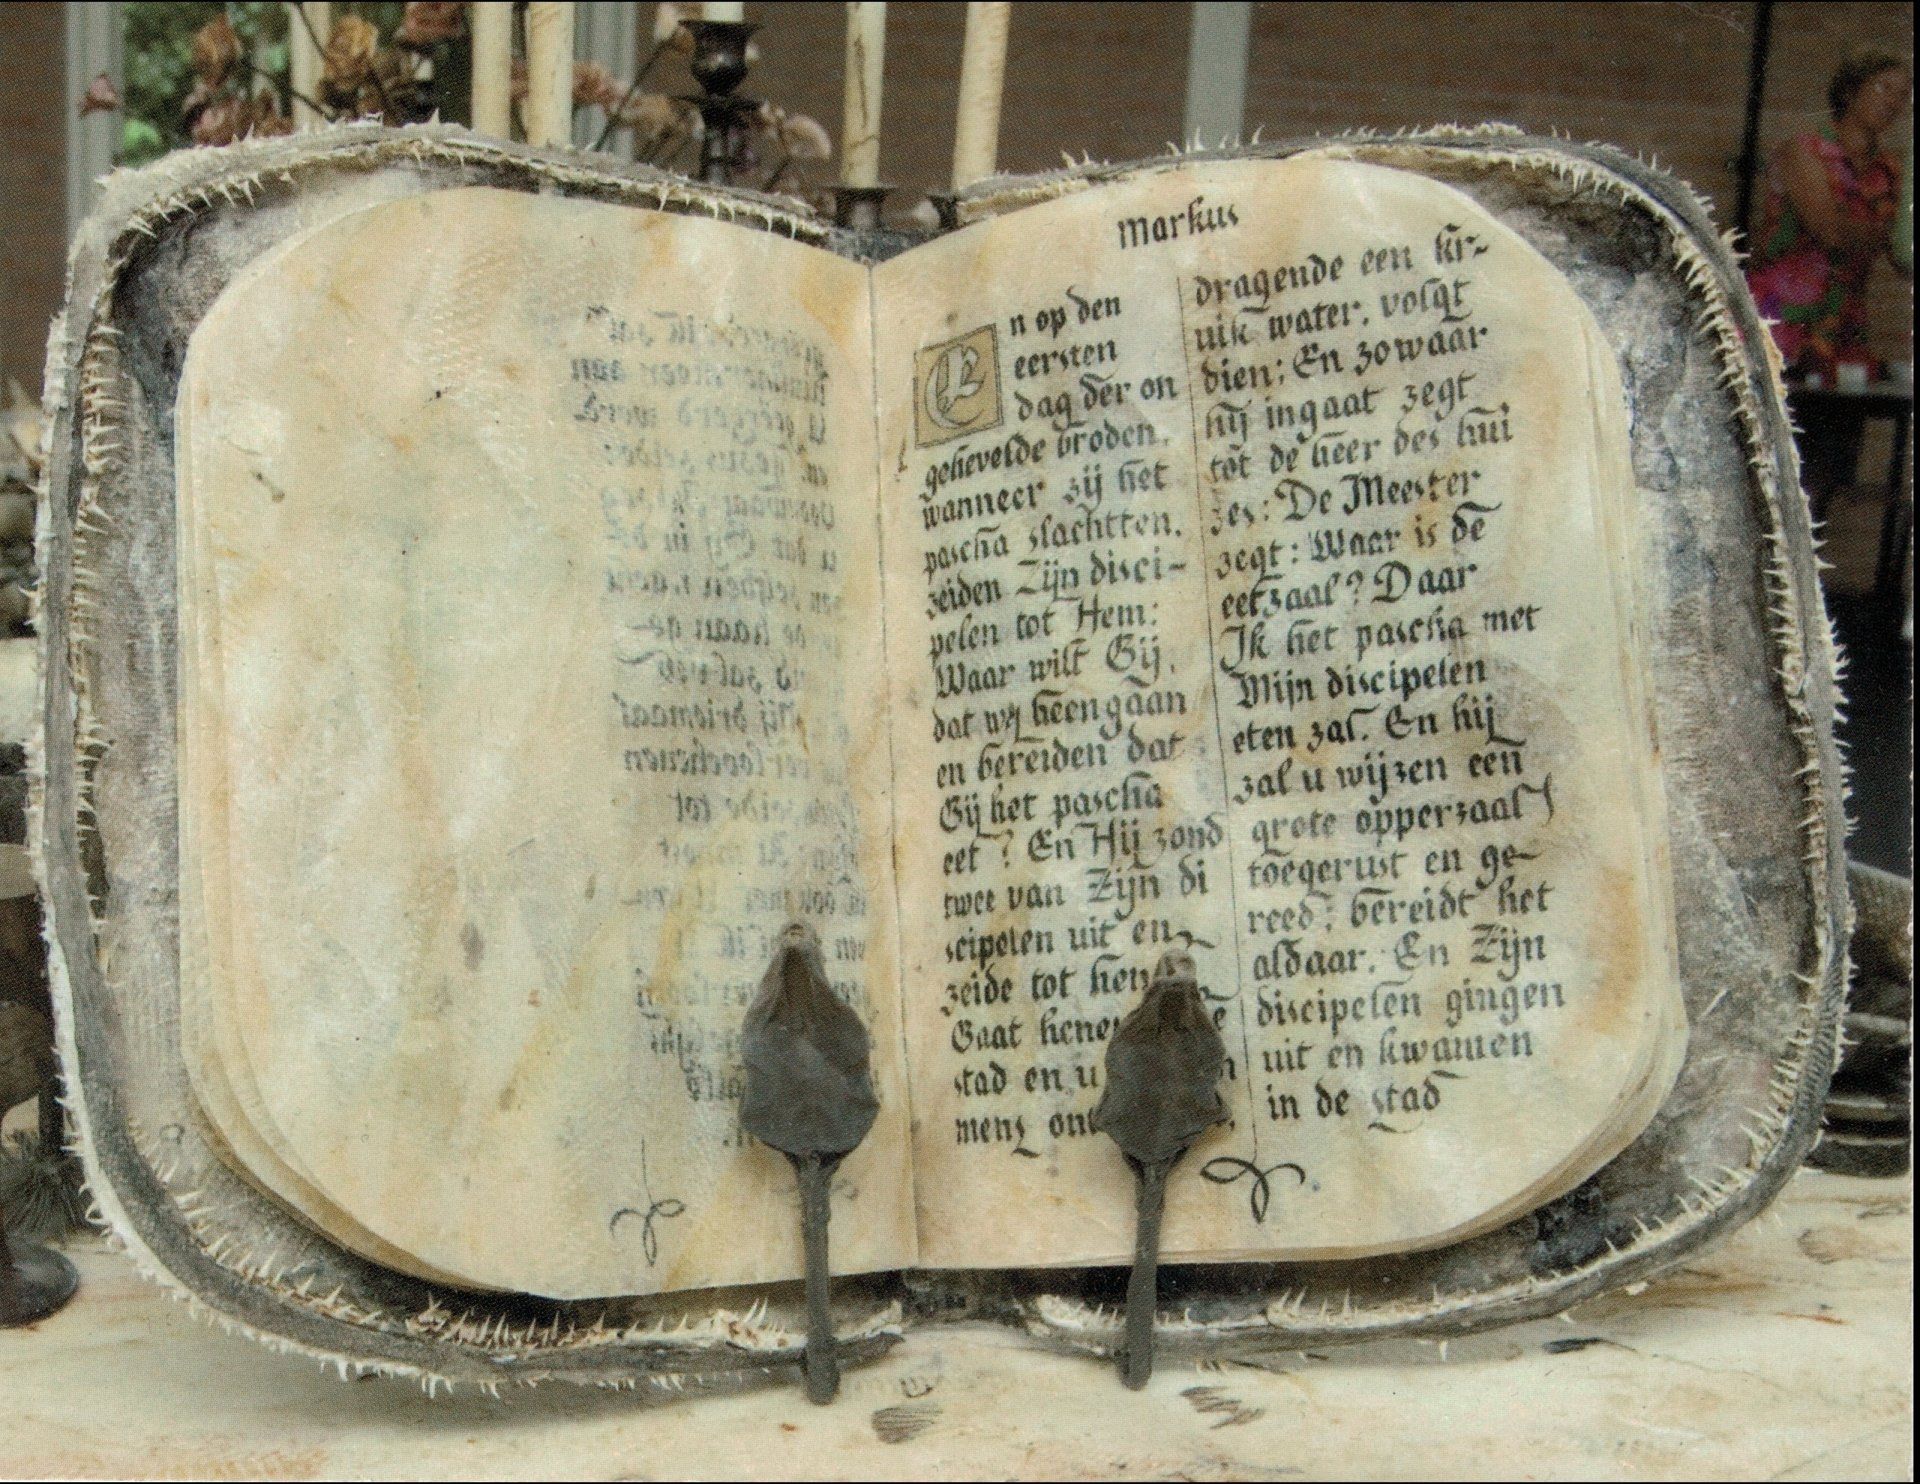 Markus
En op den
eersten
dag der on
gehevelde broden,
wanneer zij het
pascha slachtten,
zeiden Zijn disci-
pelen tot Hem:
Waar wilt Gij,
dat wij heengaan
en bereiden dat
Gij het pascha
eet? En Hij zond
twee van Zijn di
scipelen uit en
zeide tot hen
Gaat henen
stad en u
mens
dragende een kr-
uik water, volgt
dien; En zo waar
hij ingaat zegt
tot de heer des hui
zes: De Meester
zegt: Waar is de
eetzaal? Daar
Ik het pascha met
Mijn discipelen
eten zal. En hij
zal u wijzen een
grote opperzaal
toegerust en ge-
reed; bereidt het
aldaar. En Zijn
discipelen gingen
uit en kwamen
in de stad